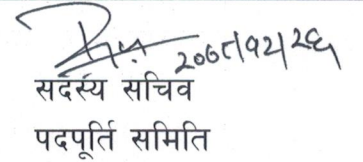 २०७८/१२/२६
सदस्य सचिव
पदपूर्ति समिति